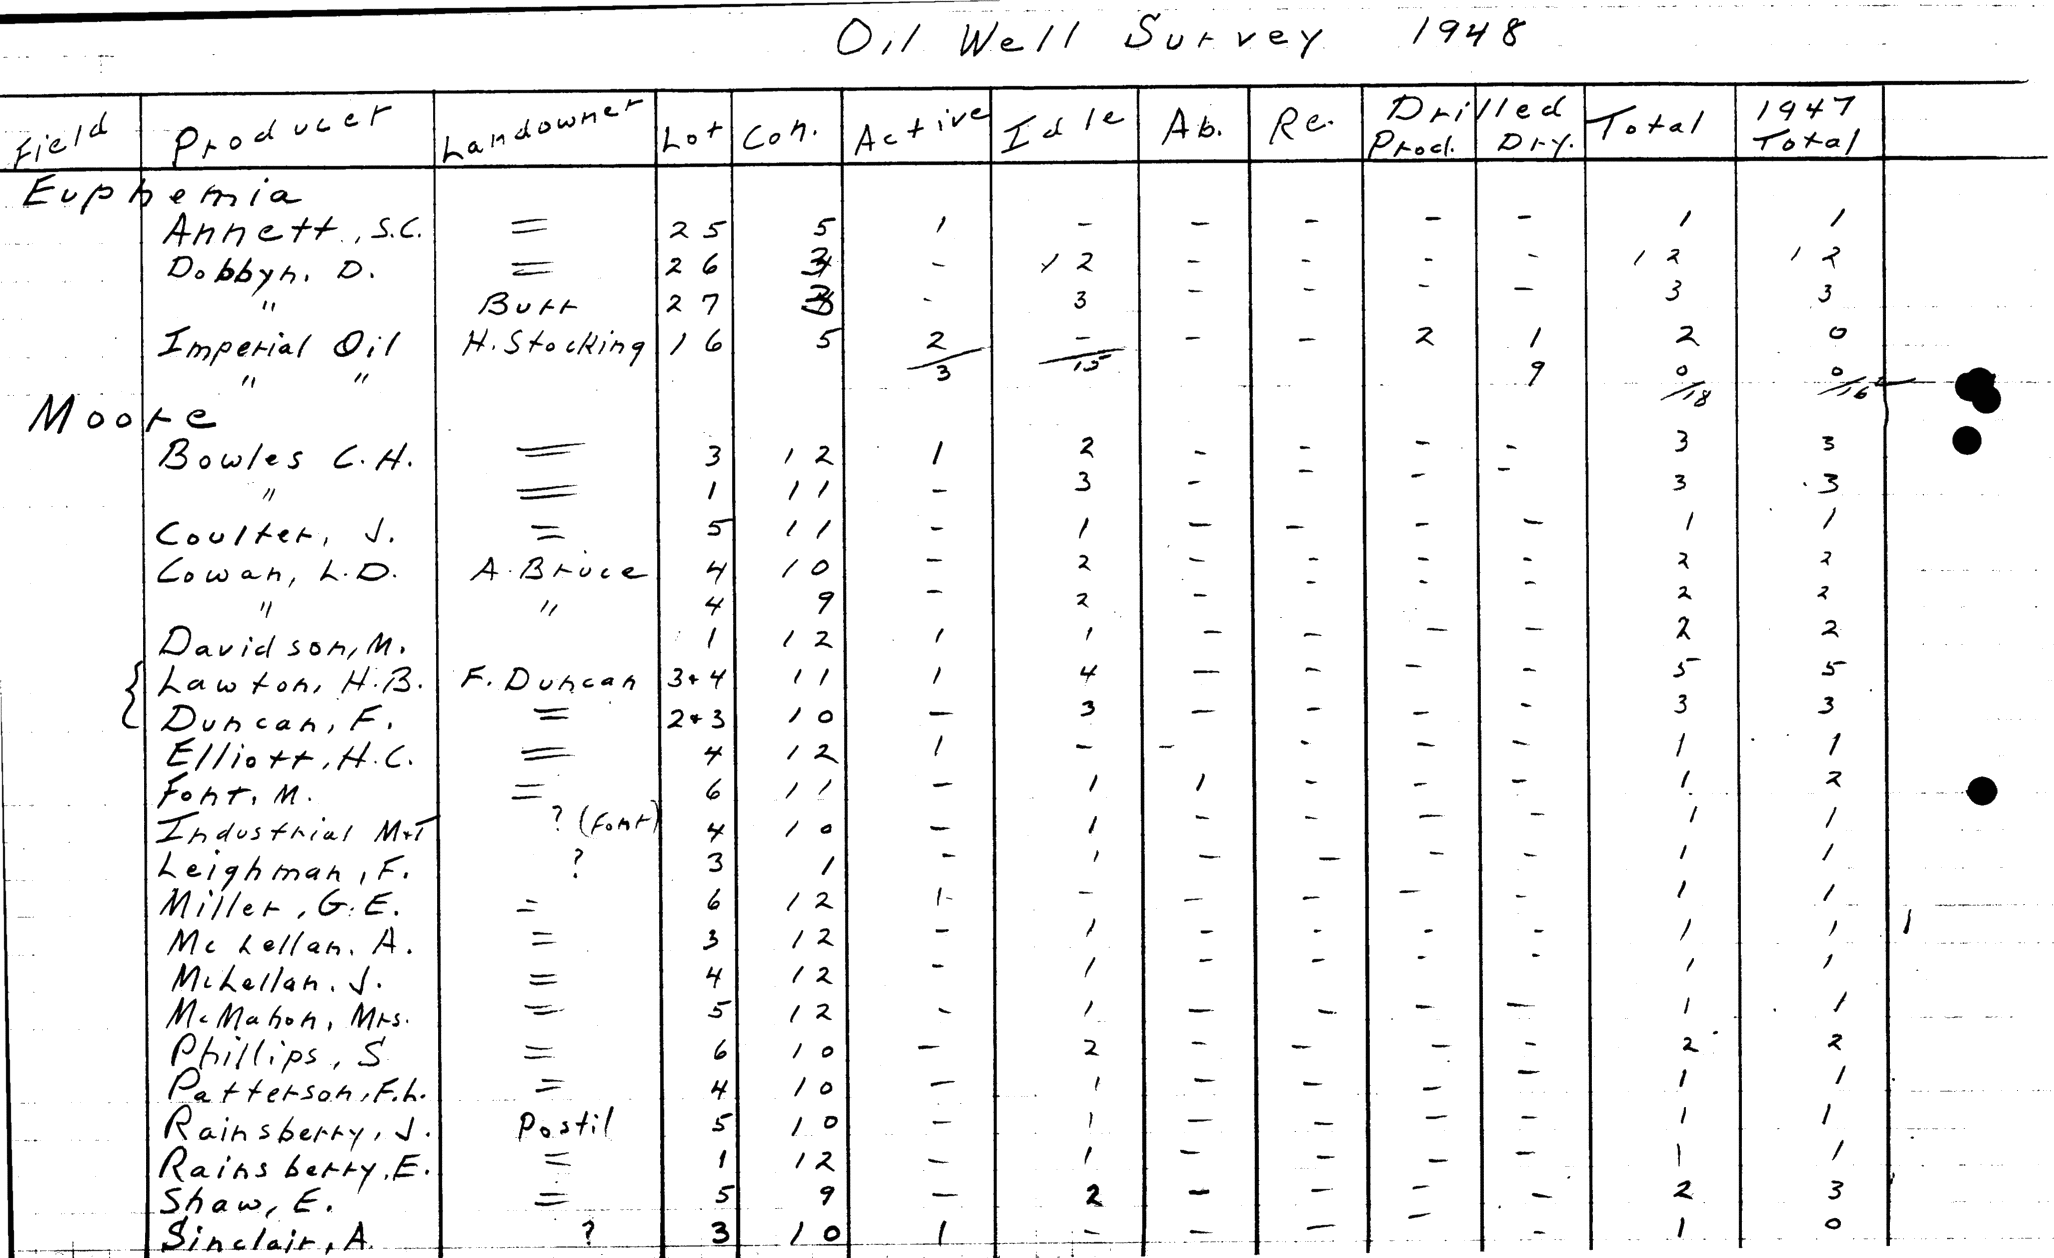 Oil Well Survey 1948
Field Producer Landowner Lot Con. Active Idle Ab. Re. Drilled Prod. Dry. Total 1947 Total
Euphemia
Annett, S.C. = 25 5 1 - - - - - 1 1
Dobbyn. D. = 26 - 12 - - - - 12 12
" Burr 27 - 3 - - - - 3 3
Imperial Oil H. Stocking 16 5 2 - - - 2 1 2 0
" " 9 0 0
3 15 18 16
Moore
Bowles C.H. = 3 12 1 2 - - - - 3 3
" = 1 11 - 3 - - - - 3 3
Coulter, J. = 5 11 - 1 - - - - 1 1
Cowan, L.D. A. Bruce 4 10 - 2 - - - - 2 2
" " 4 9 - 2 - - - - 2 2
Davidson, M. 1 12 1 1 - - - - 2 2
Lawton, H.B. F. Duncan 3+4 11 1 4 - - - - 5 5
Duncan, F. = 2+3 10 - 3 - - - - 3 3
Elliott, H.C. = 4 12 1 - - - - - 1 1
Font, M. = 6 11 - 1 1 - - - 1 2
Industrial M+T ? (Font) 4 10 - 1 - - - - 1 1
Leighman, F. ? 3 1 - 1 - - - - 1 1
Miller, G.E. = 6 12 1 - - - - - 1 1
McLellan. A. = 3 12 - 1 - - - - 1 1
McLellan. J. = 4 12 - 1 - - - - 1 1
McMahon, Mrs. = 5 12 - 1 - - - - 1 1
Phillips, S = 6 10 - 2 - - - - 2 2
Patterson, F.L. = 4 10 - 1 - - - - 1 1
Rainsberry, J. Postil 5 10 - 1 - - - - 1 1
Rainsberry, E. = 1 12 - 1 - - - - 1 1
Shaw, E. = 5 9 - 2 - - - - 2 3
Sinclair, A. ? 3 10 1 - - - - - 1 0